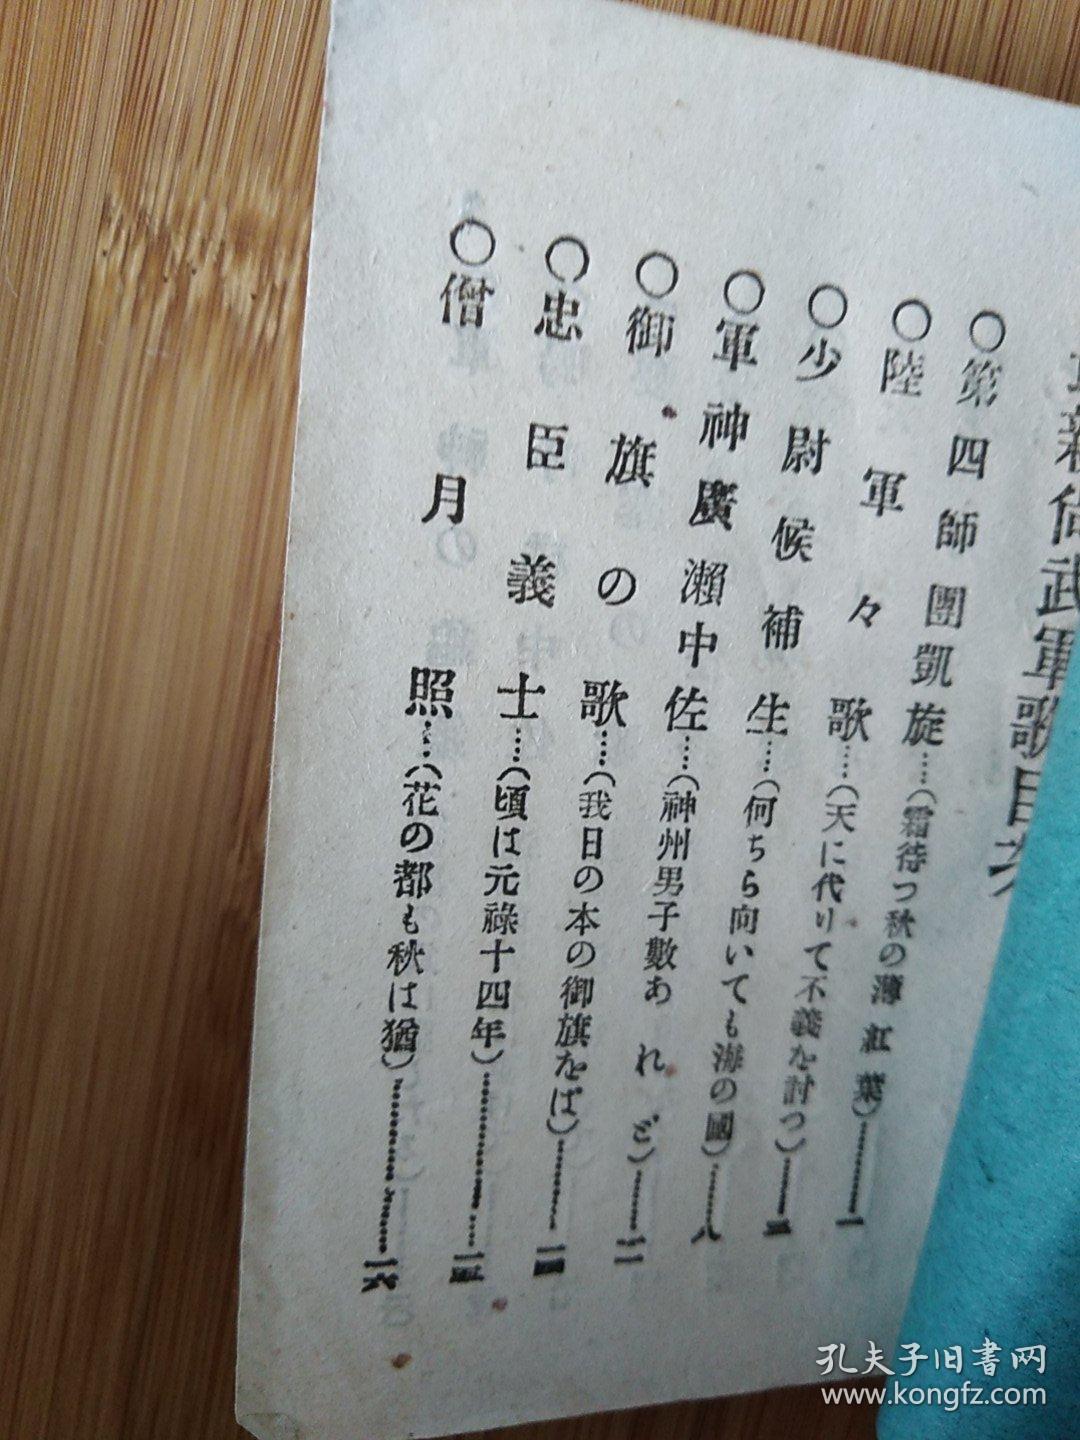 新尚武軍歌目次
○第四師團凱旋……(霜待つ秋の薄紅葉)…………一
○陸軍々歌……(天に代りて不義を討つ)…………三
○少尉候補生……(何ちら向いても海の國)…………八
○軍神廣瀨中佐……(神州男子數あれど)…………一一
○御旗の歌……(我日の本の御旗をば)…………一四
○忠臣義士……(頃は元祿十四年)…………一五
○僧月照……(花の都も秋は猶)…………一六
孔夫子旧書网
www.kongfz.com